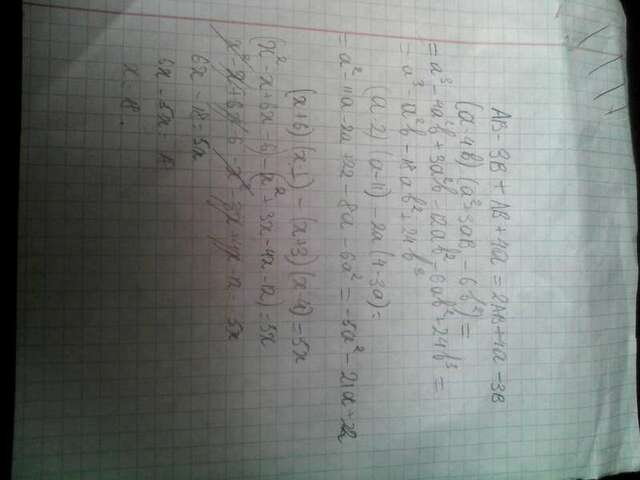 AB - 3B + AB + 4a = 2AB + 4a - 3B
(a - 4b) (a² + 3ab - 6b²) =
= a³ - 4a²b + 3a²b - 12ab² - 6ab² + 24b³ =
= a³ - a²b - 18ab² + 24b³
(a - 2) (a - 11) - 2a (4 - 3a) =
= a² - 11a - 2a + 22 - 8a - 6a² = -5a² - 21a + 22
(x + 6) (x - 1) - (x + 3) (x - 4) = 5x
(x² - x + 6x - 6) - (x² + 3x - 4x - 12) = 5x
x² - x + 6x - 6 - x² - 3x + 4x - 12 = 5x
6x - 18 = 5x
6x - 5x = 18
x = 18.